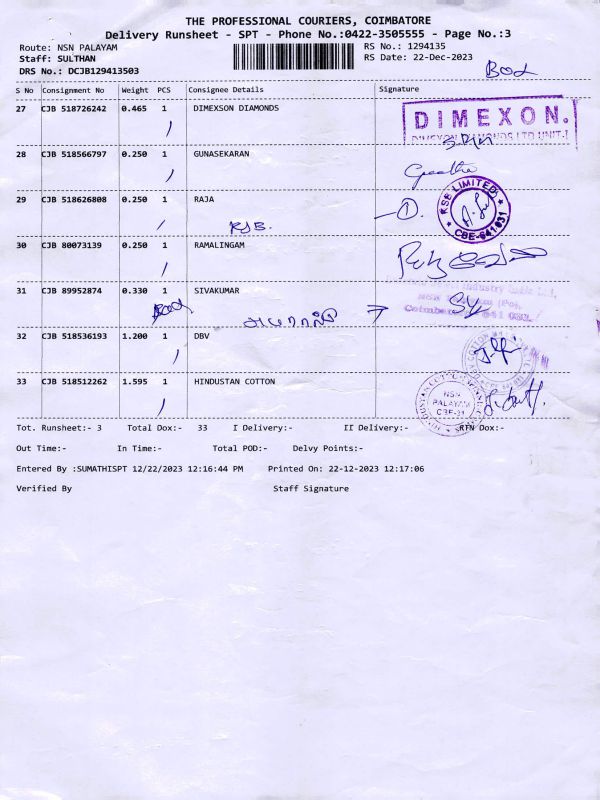 THE PROFESSIONAL COURIERS, COIMBATORE
Delivery Runsheet - SPT - Phone No.:0422-3505555 - Page No.:3
Route: NSN PALAYAM
RS No.: 1294135
Staff: SULTHAN
RS Date: 22-Dec-2023
DRS No.: DCJB129413503
S No Consignment No Weight PCS Consignee Details Signature
27 CJB 518726242 0.465 1 DIMEXSON DIAMONDS
DIMEXON.
DIMEXON DIAMONDS LTD UNIT.I
28 CJB 518566797 0.250 1 GUNASEKARAN
Geetha
29 CJB 518626808 0.250 1 RAJA
RSB.
①.
KSB LIMITED
CBE-641031
30 CJB 80073139 0.250 1 RAMALINGAM
31 CJB 89952874 0.330 1 SIVAKUMAR
32 CJB 518536193 1.200 1 DBV
33 CJB 518512262 1.595 1 HINDUSTAN COTTON
NSN
PALAYAM
CBE-31
Tot. Runsheet:- 3 Total Dox:- 33 I Delivery:- II Delivery:- RTN Dox:-
Out Time:- In Time:- Total POD:- Delvy Points:-
Entered By :SUMATHISPT 12/22/2023 12:16:44 PM Printed On: 22-12-2023 12:17:06
Verified By Staff Signature